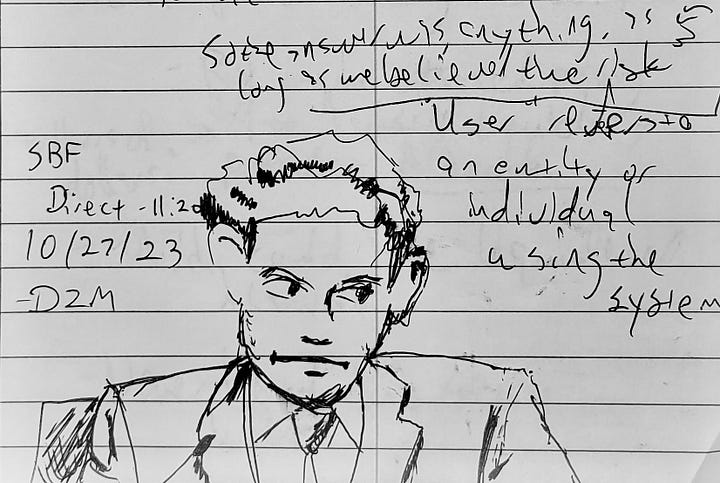 anything, as
long as we believed the risk
"User" refers to
an entity or
individual
using the
system
SBF
Direct - 11:20
10/27/23
-DZM